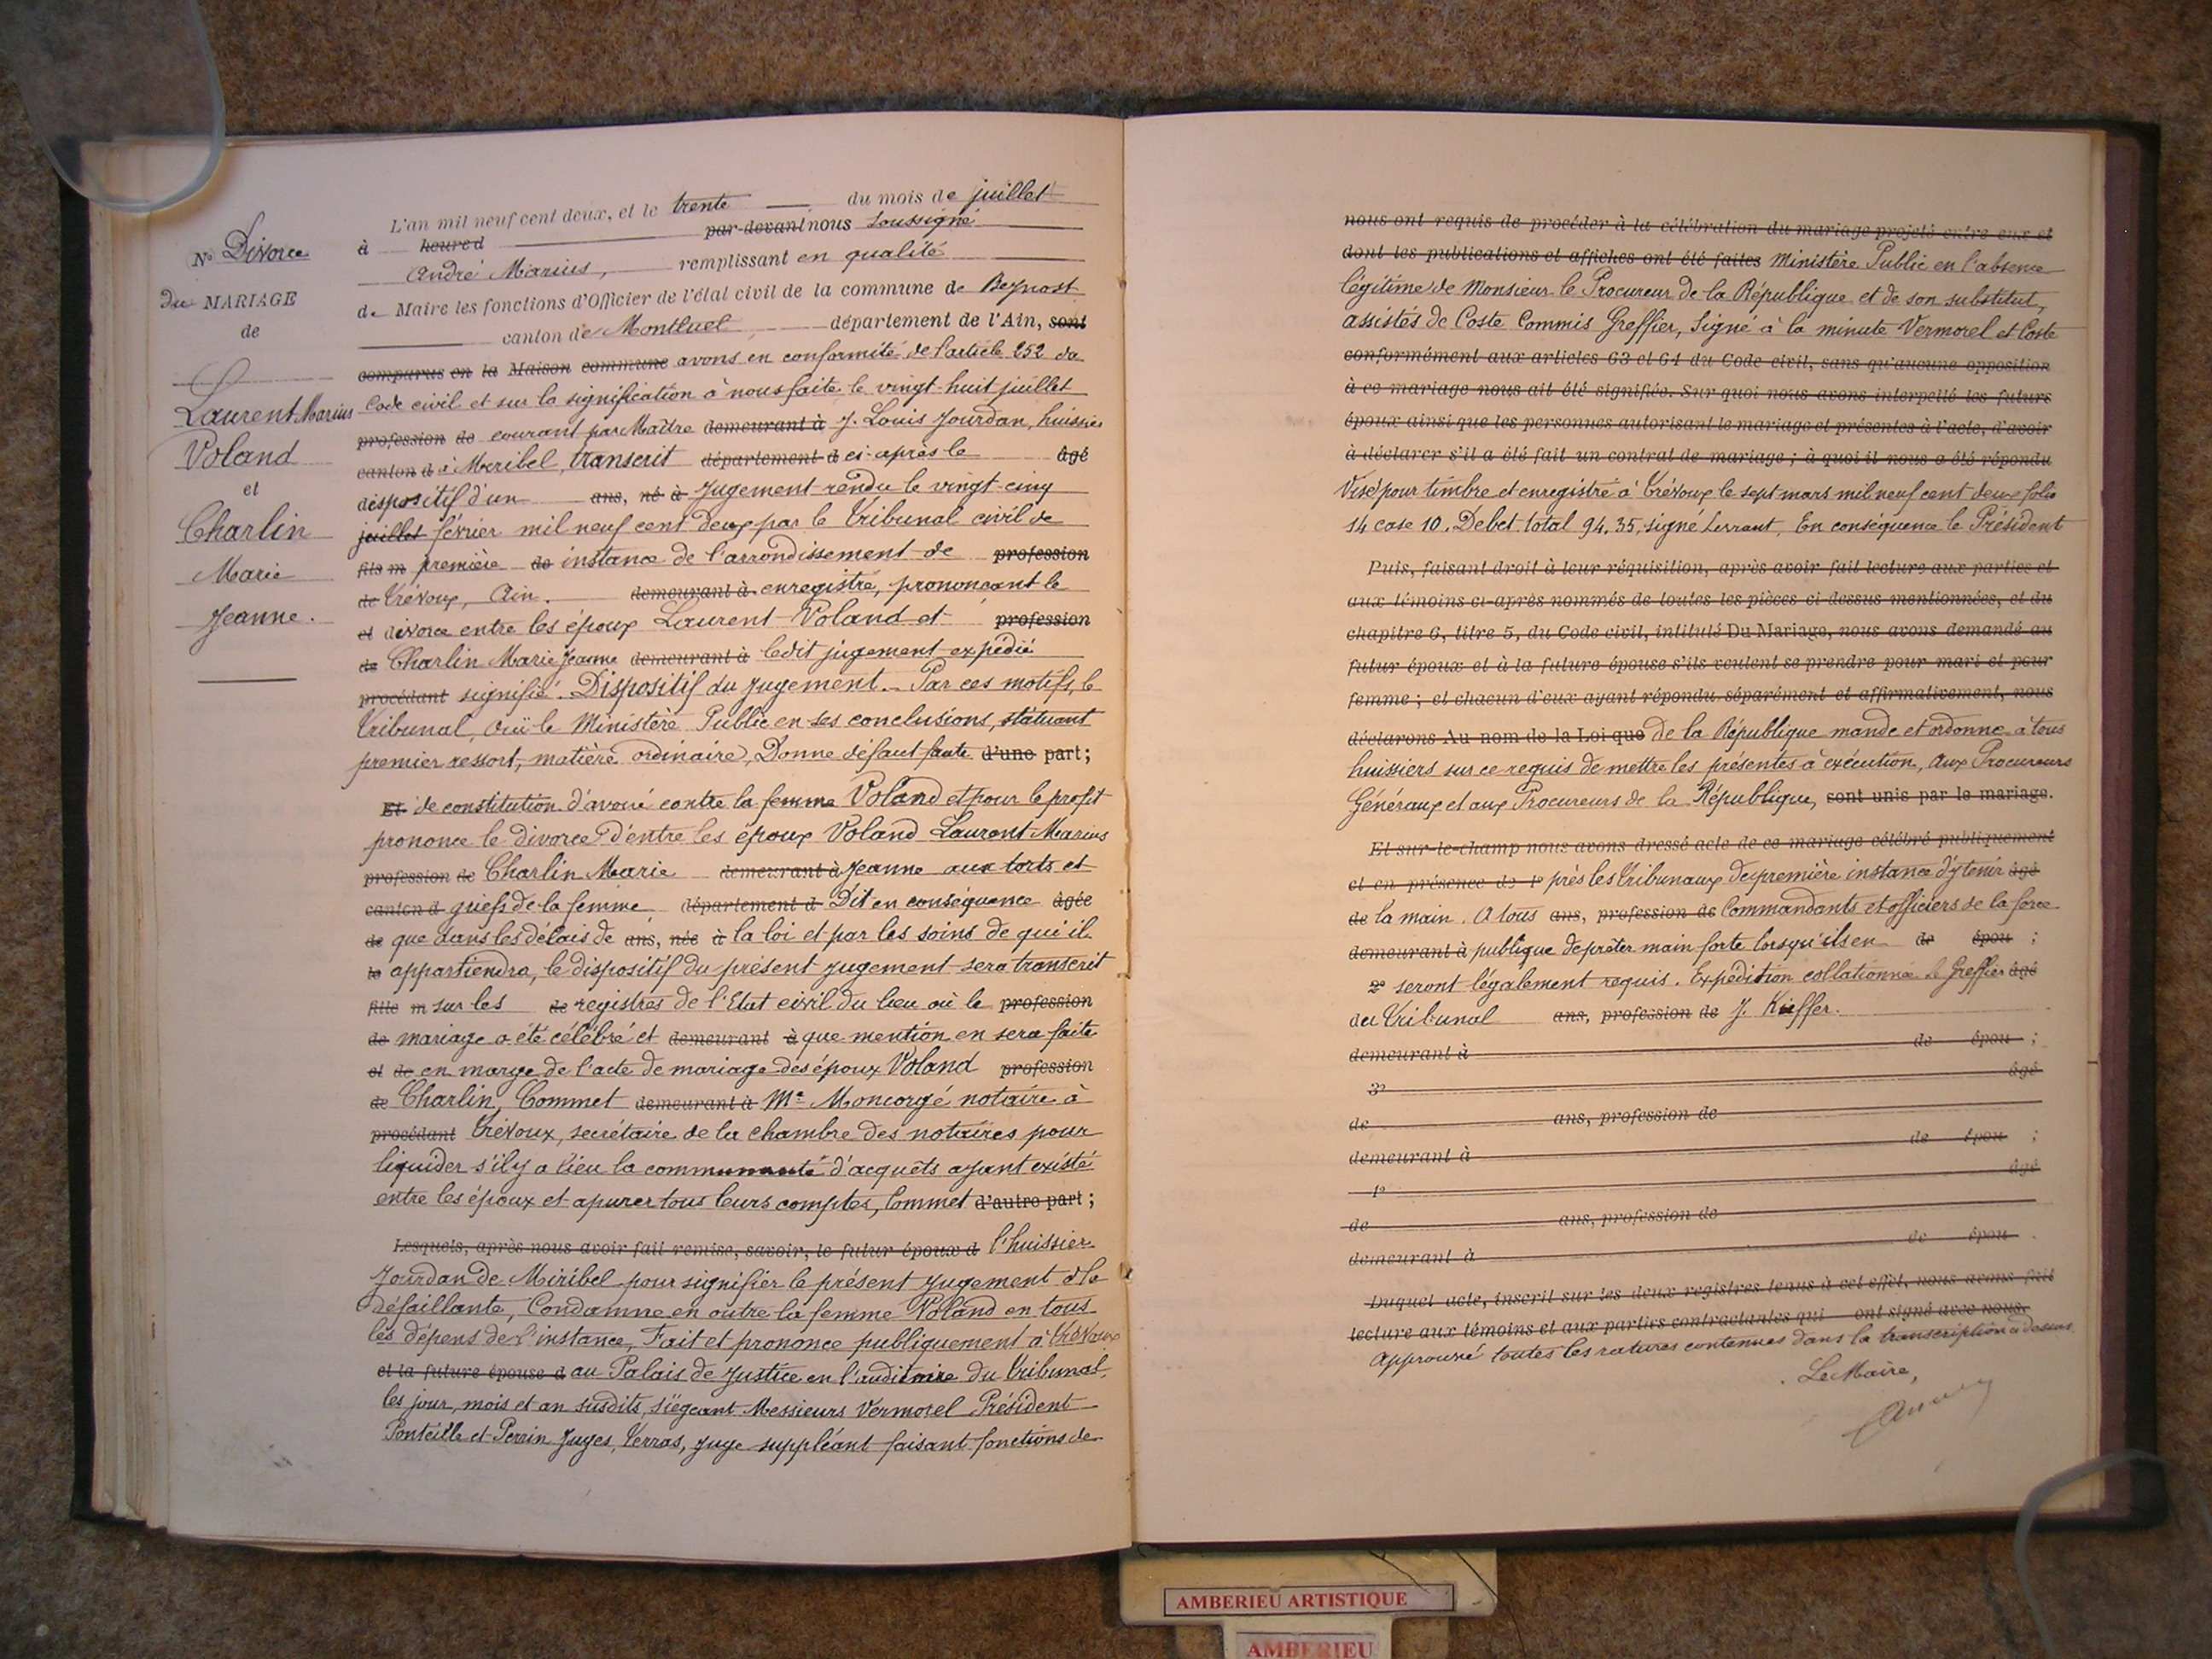 N° Divorce
du MARIAGE
de
Laurent Marius
Voland
et
Charlin
Marie
Jeanne.
L'an mil neuf cent deux, et le trente du mois de juillet
à heure d par-devant nous soussigné
André Marius, remplissant en qualité
de Maire les fonctions d'Officier de l'état civil de la commune de Beynost
canton de Montluel département de l'Ain, sont
comparus en la Maison commune avons en conformité de l'article 252 du
Code civil et sur la signification à nous faite, le vingt-huit juillet
profession de courant par Maître demeurant à J. Louis Jourdan, huissier
canton d à Meribel, transcrit département d ci-après le âgé
dispositif d'un ans, né à Jugement rendu le vingt-cinq
juillet février mil neuf cent deux par le Tribunal civil de
fils m première de instance de l'arrondissement de profession
de Trévoux, Ain. demeurant à enregistré, prononçant le
et divorce entre les époux Laurent Voland et profession
de Charlin Marie Jeanne demeurant à ledit jugement expédié
procédant signifié. Dispositif du Jugement. - Par ces motifs, le
Tribunal, ouï le Ministère Public en ses conclusions, statuant
premier ressort, matière ordinaire, Donne défaut faute d'une part;
Et de constitution d'avoué contre la femme Voland et pour le profit
prononce le divorce d'entre les époux Voland Laurent Marius
profession de Charlin Marie demeurant à Jeanne aux torts et
canton d griefs de la femme département d Dit en conséquence âgée
de que dans les délais de ans, née à la loi et par les soins de qui il
le appartiendra, le dispositif du présent jugement sera transcrit
fille m sur les de registres de l'Etat civil du lieu où le profession
de mariage a été célébré et demeurant à que mention en sera faite
et de en marge de l'acte de mariage des époux Voland profession
de Charlin, Commet demeurant à Me Moncorgé notaire à
procédant Trévoux, secrétaire de la chambre des notaires pour
liquider s'il y a lieu la communauté d'acquêts ayant existé
entre les époux et apurer tous leurs comptes, Commet d'autre part;
Lesquels, après nous avoir fait remise, savoir, le futur époux d l'huissier
Jourdan de Miribel pour signifier le présent jugement à la
défaillante, Condamne en outre la femme Voland en tous
les dépens de l'instance, Fait et prononcé publiquement à Trévoux
et la future épouse d au Palais de Justice en l'auditoire du Tribunal,
les jour, mois et an susdits, siégeant Messieurs Vermorel Président
Ponteille et Perrin Juges, Verras, juge suppléant faisant fonctions de
nous ont requis de procéder à la célébration du mariage projeté entre eux et
dont les publications et affiches ont été faites Ministère Public en l'absence
légitime de Monsieur le Procureur de la République et de son substitut,
assistés de Coste Commis Greffier, Signé à la minute Vermorel et Coste
conformément aux articles 63 et 64 du Code civil, sans qu'aucune opposition
à ce mariage nous ait été signifiée. Sur quoi nous avons interpellé les futurs
époux ainsi que les personnes autorisant le mariage et présentes à l'acte, d'avoir
à déclarer s'il a été fait un contrat de mariage; à quoi il nous a été répondu
Visé pour timbre et enregistré à Trévoux le sept mars mil neuf cent deux folio
14 case 10. Debet total 94,35, signé En conséquence le Président
Puis, faisant droit à leur réquisition, après avoir fait lecture aux parties et
aux témoins ci-après nommés de toutes les pièces ci-dessus mentionnées, et du
chapitre 6, titre 5, du Code civil, intitulé Du Mariage, nous avons demandé au
futur époux et à la future épouse s'ils veulent se prendre pour mari et pour
femme; et chacun d'eux ayant répondu séparément et affirmativement, nous
déclarons Au nom de la Loi que de la République mande et ordonne à tous
huissiers sur ce requis de mettre les présentes à exécution, aux Procureurs
Généraux et aux Procureurs de la République, sont unis par le mariage.
Et sur-le-champ nous avons dressé acte de ce mariage célébré publiquement
et en présence de 1° près les Tribunaux de première instance d'y tenir âgé
de la main. A tous ans, profession de Commandants et officiers de la force
demeurant à publique de prêter main forte lorsqu'ils en de épou ;
2° seront légalement requis. Expédition collationnée le Greffier âgé
du Tribunal ans, profession de J. Kieffer.
demeurant à de épou ;
3° âgé
de ans, profession de
demeurant à de épou ;
4° âgé
de ans, profession de
demeurant à de épou .
Duquel acte, inscrit sur les deux registres tenus à cet effet, nous avons fait
lecture aux témoins et aux parties contractantes qui ont signé avec nous.
Approuvé toutes les ratures contenues dans la transcription ci-dessus
Le Maire,
AMBERIEU ARTISTIQUE
AMBERIEU